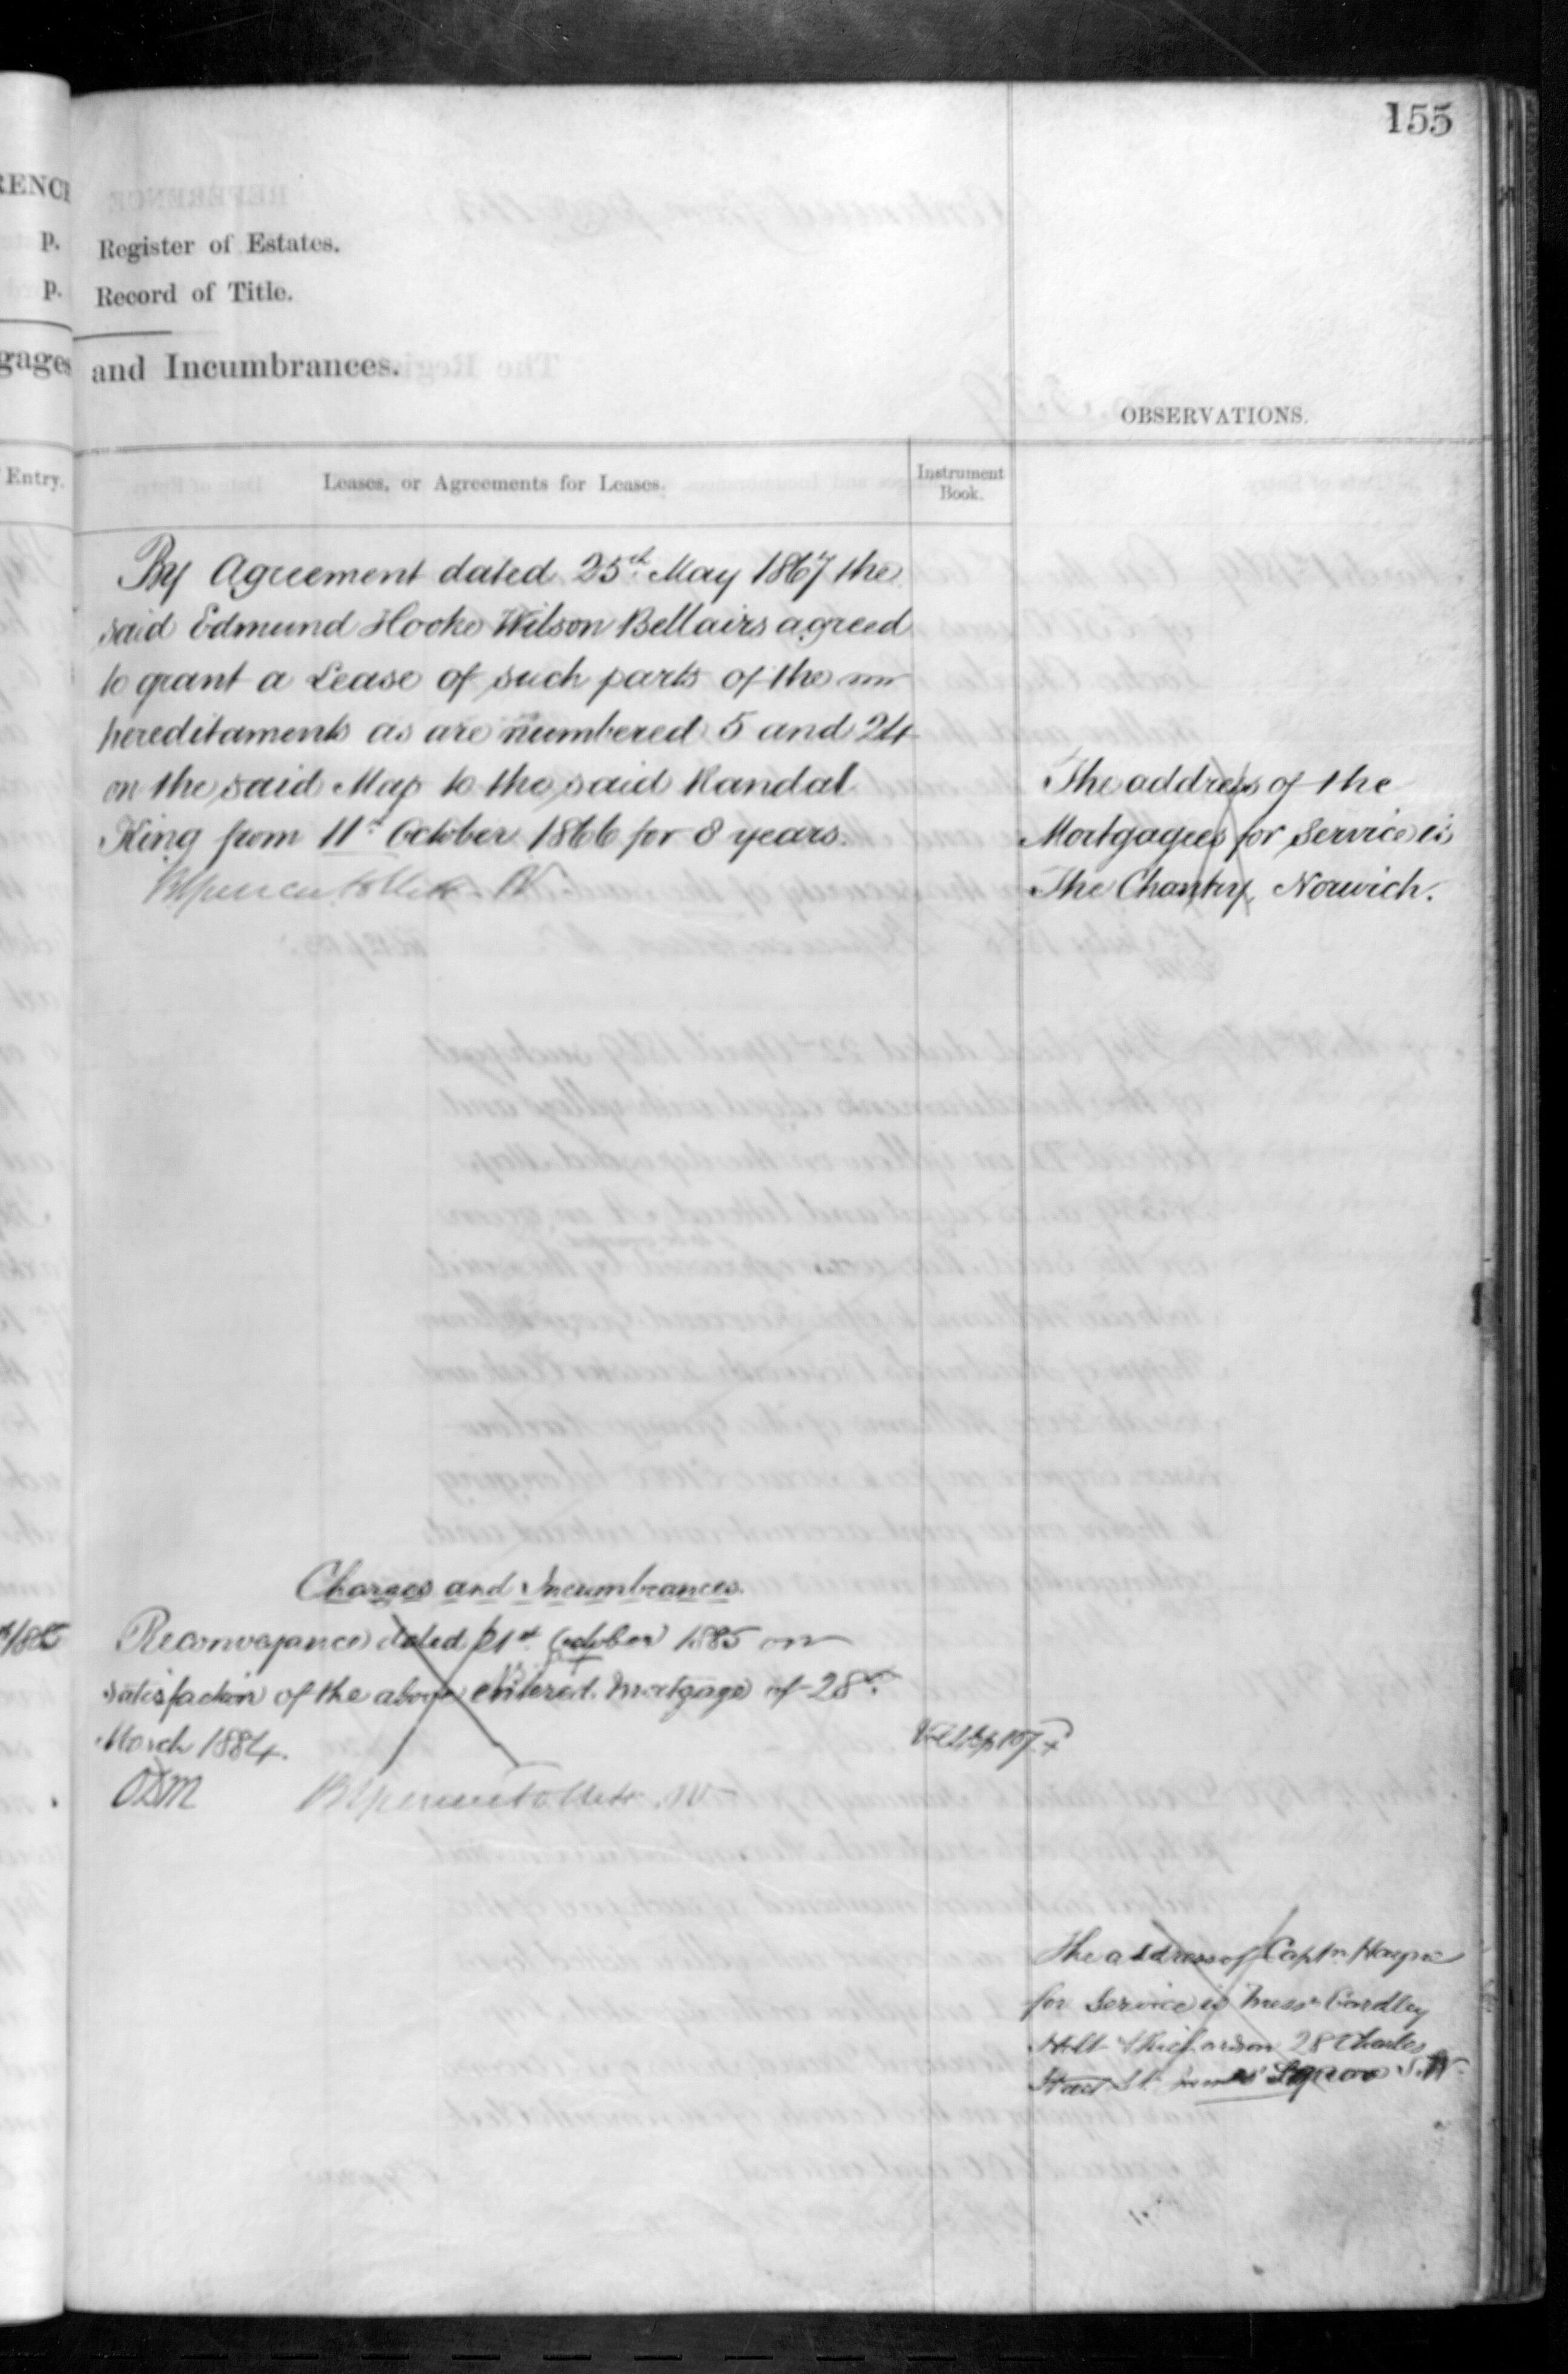 155
Register of Estates.
Record of Title.
and Incumbrances.
OBSERVATIONS.
Entry.
Leases, or Agreements for Leases.
Instrument Book.
By Agreement dated 25th May 1867 the
said Edmund Hooke Wilson Bellairs agreed
to grant a Lease of such parts of the
hereditaments as are numbered 5 and 24
on the said Map to the said Randal
King from 11th October 1866 for 8 years.
The address of the
Mortgagees for Service is
The Chantry, Norwich.
Charges and Incumbrances.
Reconveyance dated 21st October 1885 on
satisfaction of the above entered Mortgage of 28th
March 1884.
The address of Captn
for Service is Messrs
Holt & Richardson 28 Charles
Street St James' Square S.W.